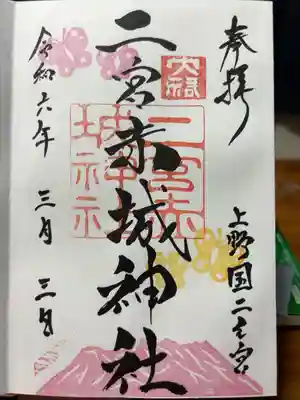 奉拝
上野国二之宮
大祓
二宮赤城神社
二宮赤
城神
社示
令和六年 三月 三日